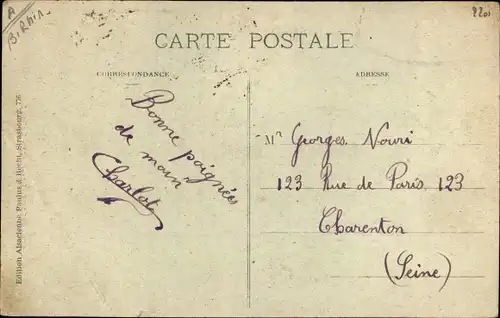 A
B. Rhin.
220
CARTE POSTALE
CORRESPONDANCE
ADRESSE
Bonne poignées
de main
Charlot
Mr Georges. Nouri
123 Rue de Paris 123
Charenton
(Seine)
Edition Alsacienne Paulus & Hecht, Strasbourg. 776